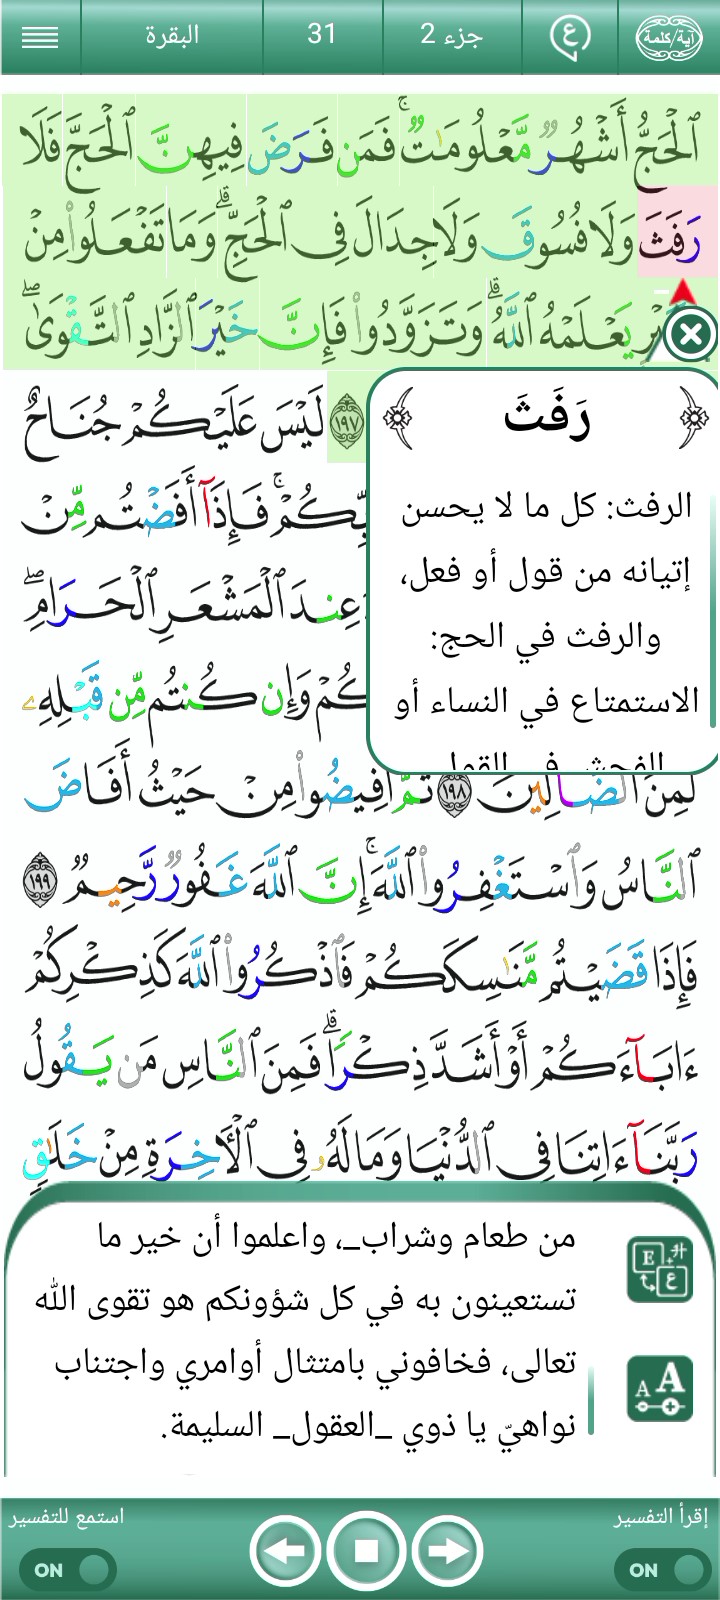 آية/كلمة
ع
جزء 2
31
البقرة
ٱلْحَجُّ أَشْهُرٌ مَّعْلُومَٰتٌ ۚ فَمَن فَرَضَ فِيهِنَّ ٱلْحَجَّ فَلَا
رَفَثَ وَلَا فُسُوقَ وَلَا جِدَالَ فِى ٱلْحَجِّ ۗ وَمَا تَفْعَلُوا۟ مِنْ
يَعْلَمْهُ ٱللَّهُ ۗ وَتَزَوَّدُوا۟ فَإِنَّ خَيْرَ ٱلزَّادِ ٱلتَّقْوَىٰ ۖ
١٩٧ لَيْسَ عَلَيْكُمْ جُنَاحٌ
فَإِذَآ أَفَضْتُم مِّنْ
عِندَ ٱلْمَشْعَرِ ٱلْحَرَامِ ۖ
وَإِن كُنتُم مِّن قَبْلِهِۦ
رَفَثَ
الرفث: كل ما لا يحسن
إتيانه من قول أو فعل،
والرفث في الحج:
الاستمتاع في النساء أو
الفحش في القول
لَمِنَ ٱلضَّآلِّينَ ١٩٨ ثُمَّ أَفِيضُوا۟ مِنْ حَيْثُ أَفَاضَ
ٱلنَّاسُ وَٱسْتَغْفِرُوا۟ ٱللَّهَ ۚ إِنَّ ٱللَّهَ غَفُورٌ رَّحِيمٌ ١٩٩
فَإِذَا قَضَيْتُم مَّنَٰسِكَكُمْ فَٱذْكُرُوا۟ ٱللَّهَ كَذِكْرِكُمْ
ءَابَآءَكُمْ أَوْ أَشَدَّ ذِكْرًا ۗ فَمِنَ ٱلنَّاسِ مَن يَقُولُ
رَبَّنَآ ءَاتِنَا فِى ٱلدُّنْيَا وَمَا لَهُۥ فِى ٱلْءَاخِرَةِ مِنْ خَلَٰقٍ
من طعام وشراب_، واعلموا أن خير ما
تستعينون به في كل شؤونكم هو تقوى الله
تعالى، فخافوني بامتثال أوامري واجتناب
نواهيّ يا ذوي _العقول_ السليمة.
E
ع
A A
إقرأ التفسير
ON
استمع للتفسير
ON